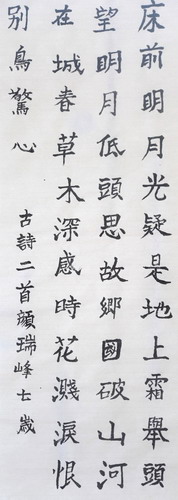 床前明月光疑是地上霜舉頭
望明月低頭思故鄉國破山河
在城春草木深感時花濺淚恨
別鳥驚心
古詩二首顏瑞峰七歲